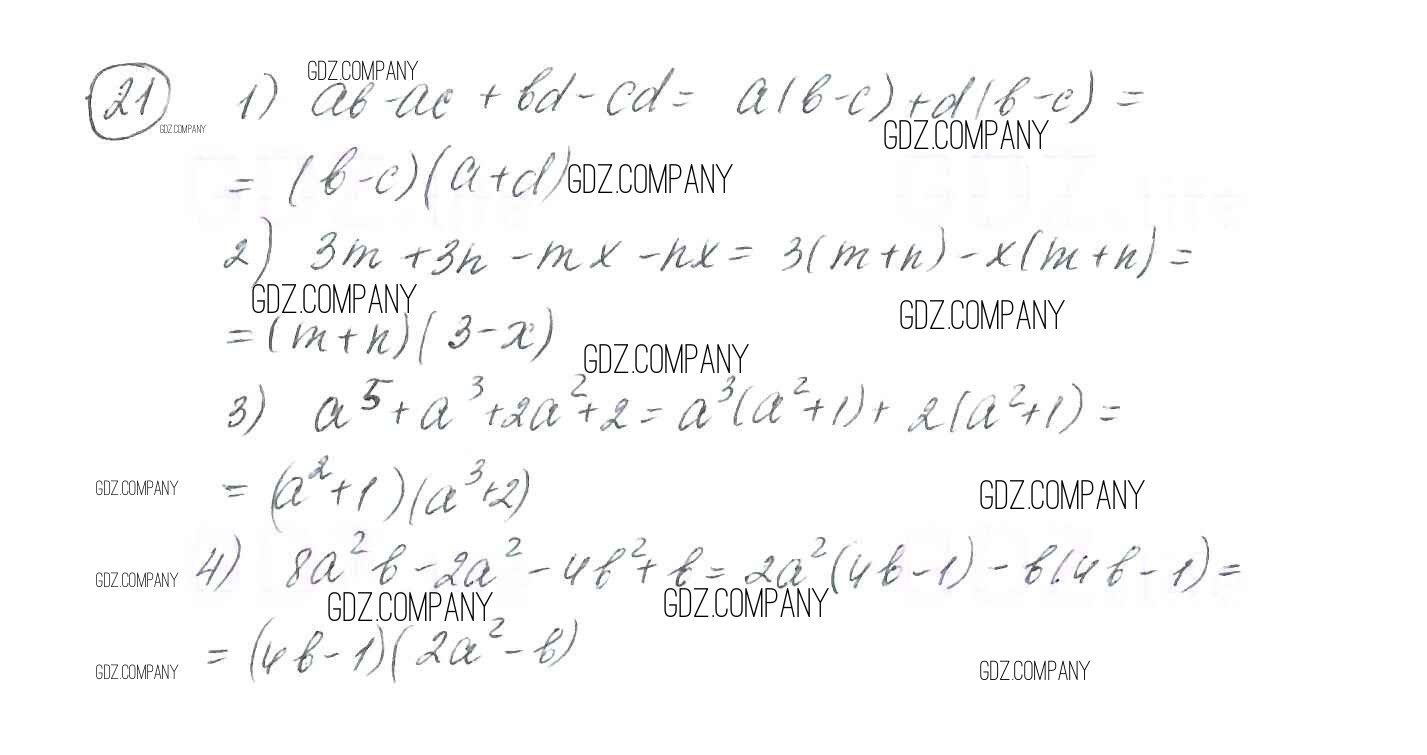 GDZ.COMPANY
21 1) ab-ac + bd - cd = a(b-c) + d(b-c) =
GDZ.COMPANY GDZ.COMPANY
= (b-c)(a+d) GDZ.COMPANY
2) 3m + 3n - mx - nx = 3(m+n) - x(m+n) =
GDZ.COMPANY GDZ.COMPANY
= (m+n)(3-x)
GDZ.COMPANY
3) a⁵ + a³ + 2a² + 2 = a³(a²+1) + 2(a²+1) =
GDZ.COMPANY = (a²+1)(a³+2) GDZ.COMPANY
GDZ.COMPANY 4) 8a²b - 2a² - 4b² + b = 2a²(4b-1) - b(4b-1) =
GDZ.COMPANY GDZ.COMPANY
= (4b-1)(2a²-b)
GDZ.COMPANY GDZ.COMPANY